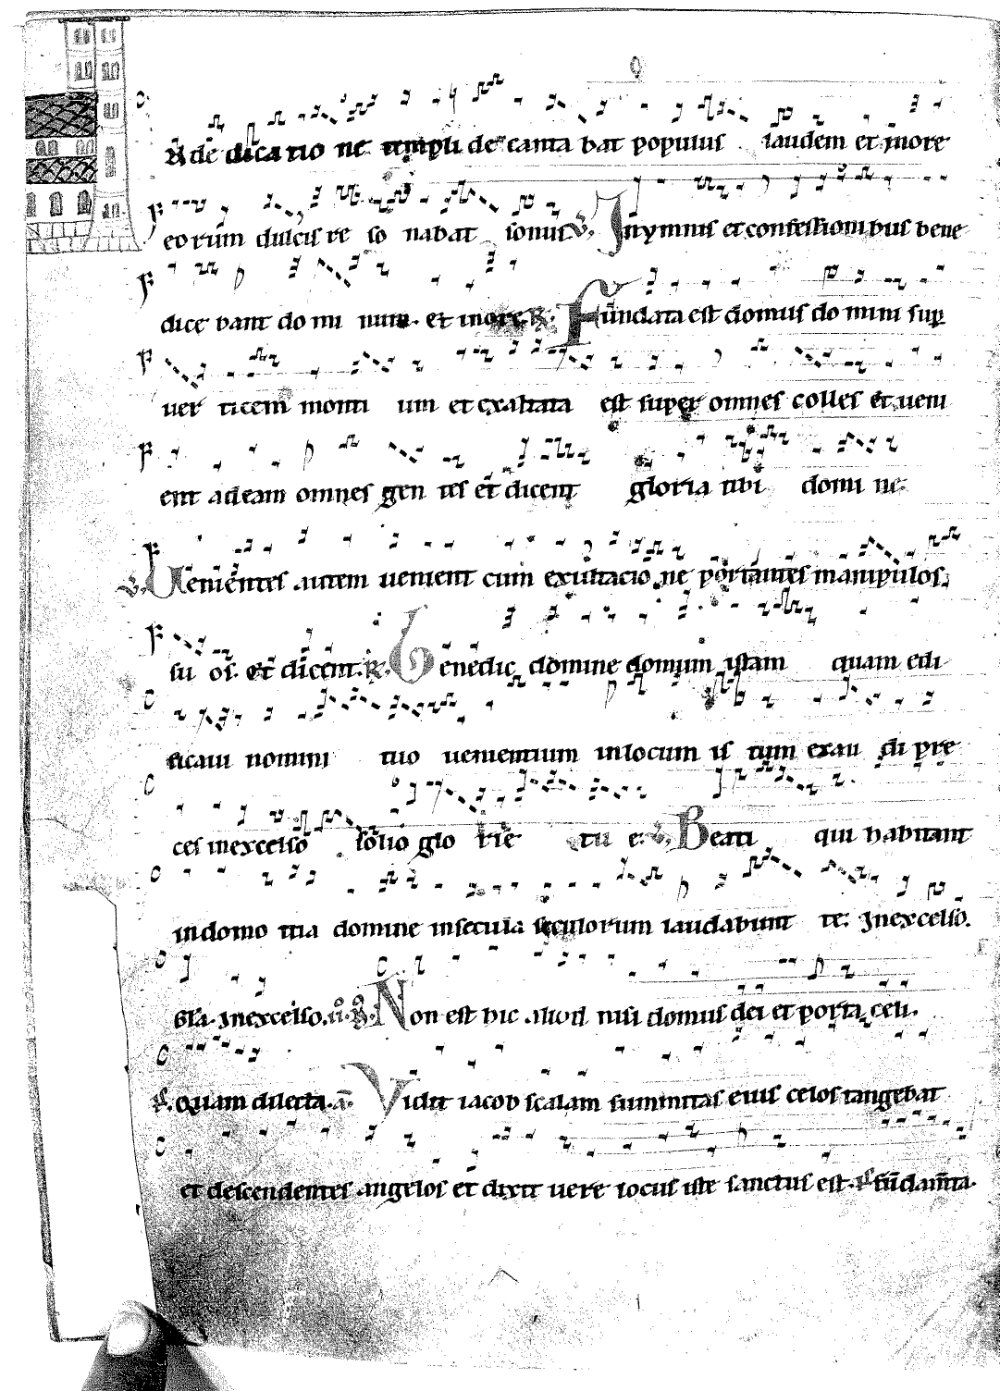 In dedicatione templi decantabat populus laudem et in ore
eorum dulcis resonabat sonus ℣. In ymnis et confessionibus bene
dicebant domi num. et in ore. ℟. Fundata est domus domini sup
verticem monti um et exaltata est super omnes colles et veni
ent ad eam omnes gentes et dicent gloria tibi domine.
℣. Venientes autem venient cum exultatione portantes manipulos
su os. et dicent. ℟. Benedic domine domum istam quam edi
ficavi nomini tuo venientium in locum is tum exau di pre
ces in excelso solio glo rie tu e. ℣. Beati qui habitant
in domo tua domine in secula seculorum laudabunt te. In excelso.
Gla. In excelso. ℟. Non est hic aliud nisi domus dei et porta celi.
ps. Quam dilecta. a. Vidit iacob scalam summitas eius celos tangebat
et descendentes angelos et dixit vere locus iste sanctus est. ps. fundam̄ta.